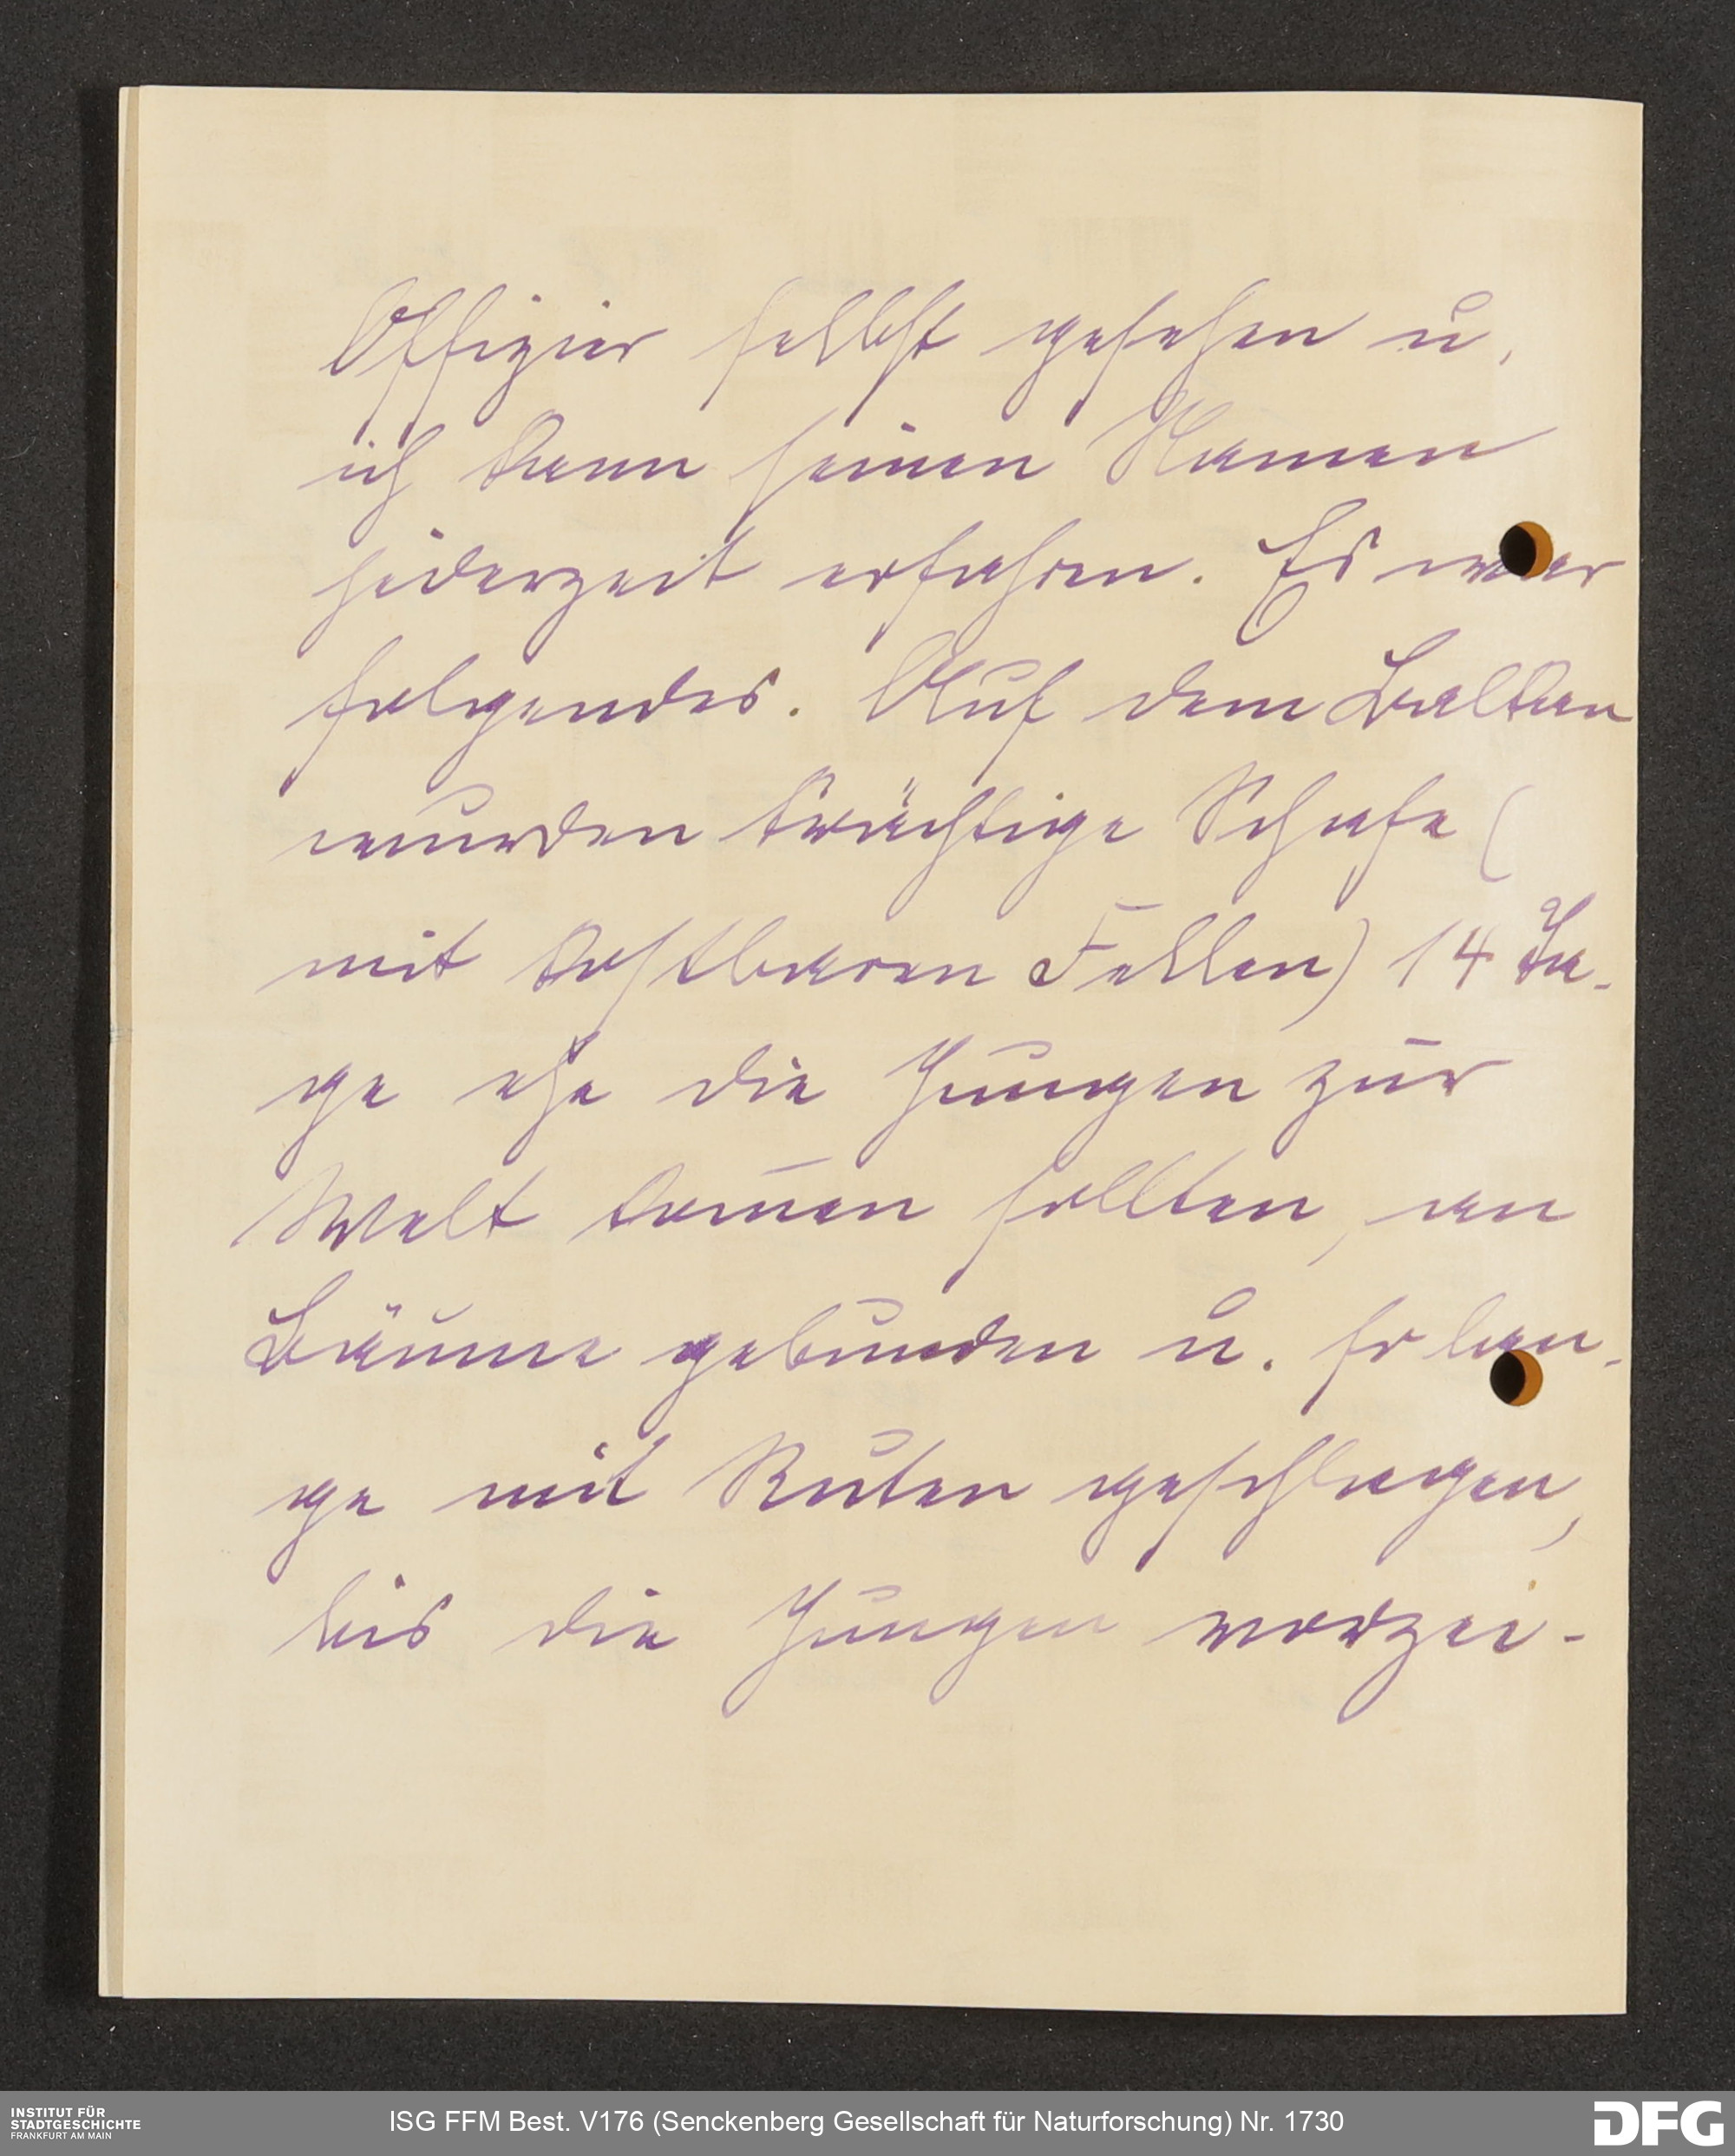 Offizier selbst gesehen u.
ich kann seinen Namen
jederzeit erfahren. Es war
folgendes. Auf dem Balkan
wurden trächtige Schafe (
mit kostbaren Fellen) 14 Ta-
ge ehe die Jungen zur
Welt kom̄en sollten, an
Bäume gebunden u. so lan-
ge mit Ruten geschlagen,
bis die Jungen vorzei-
INSTITUT FÜR
STADTGESCHICHTE
FRANKFURT AM MAIN
ISG FFM Best. V176 (Senckenberg Gesellschaft für Naturforschung) Nr. 1730
DFG